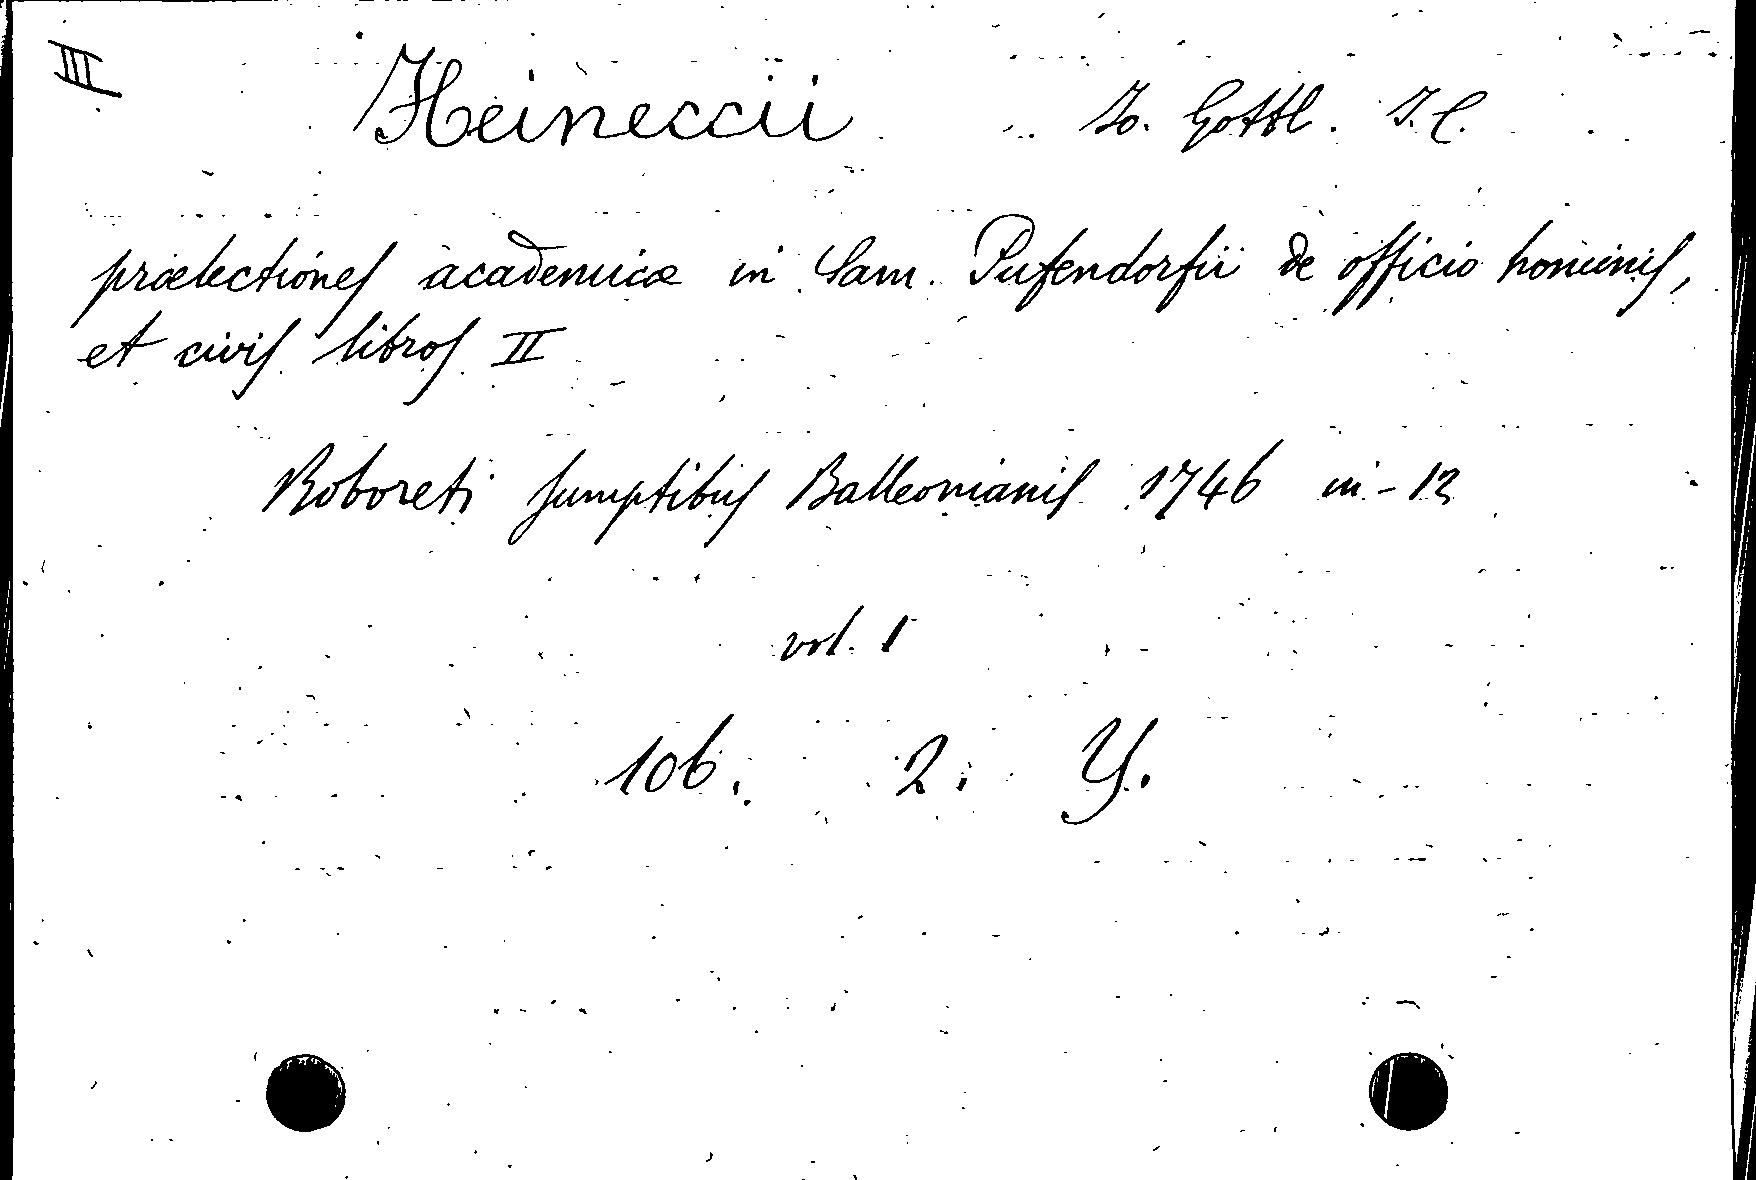 III
Heineccii Io. Gottl. I.C.
prælectiones academicæ in Sam. Pufendorfii de officio hominis,
et civis libros II
Roboreti sumptibus Balleonianis 1746 in-12
vol. 1
106. 2. Y.